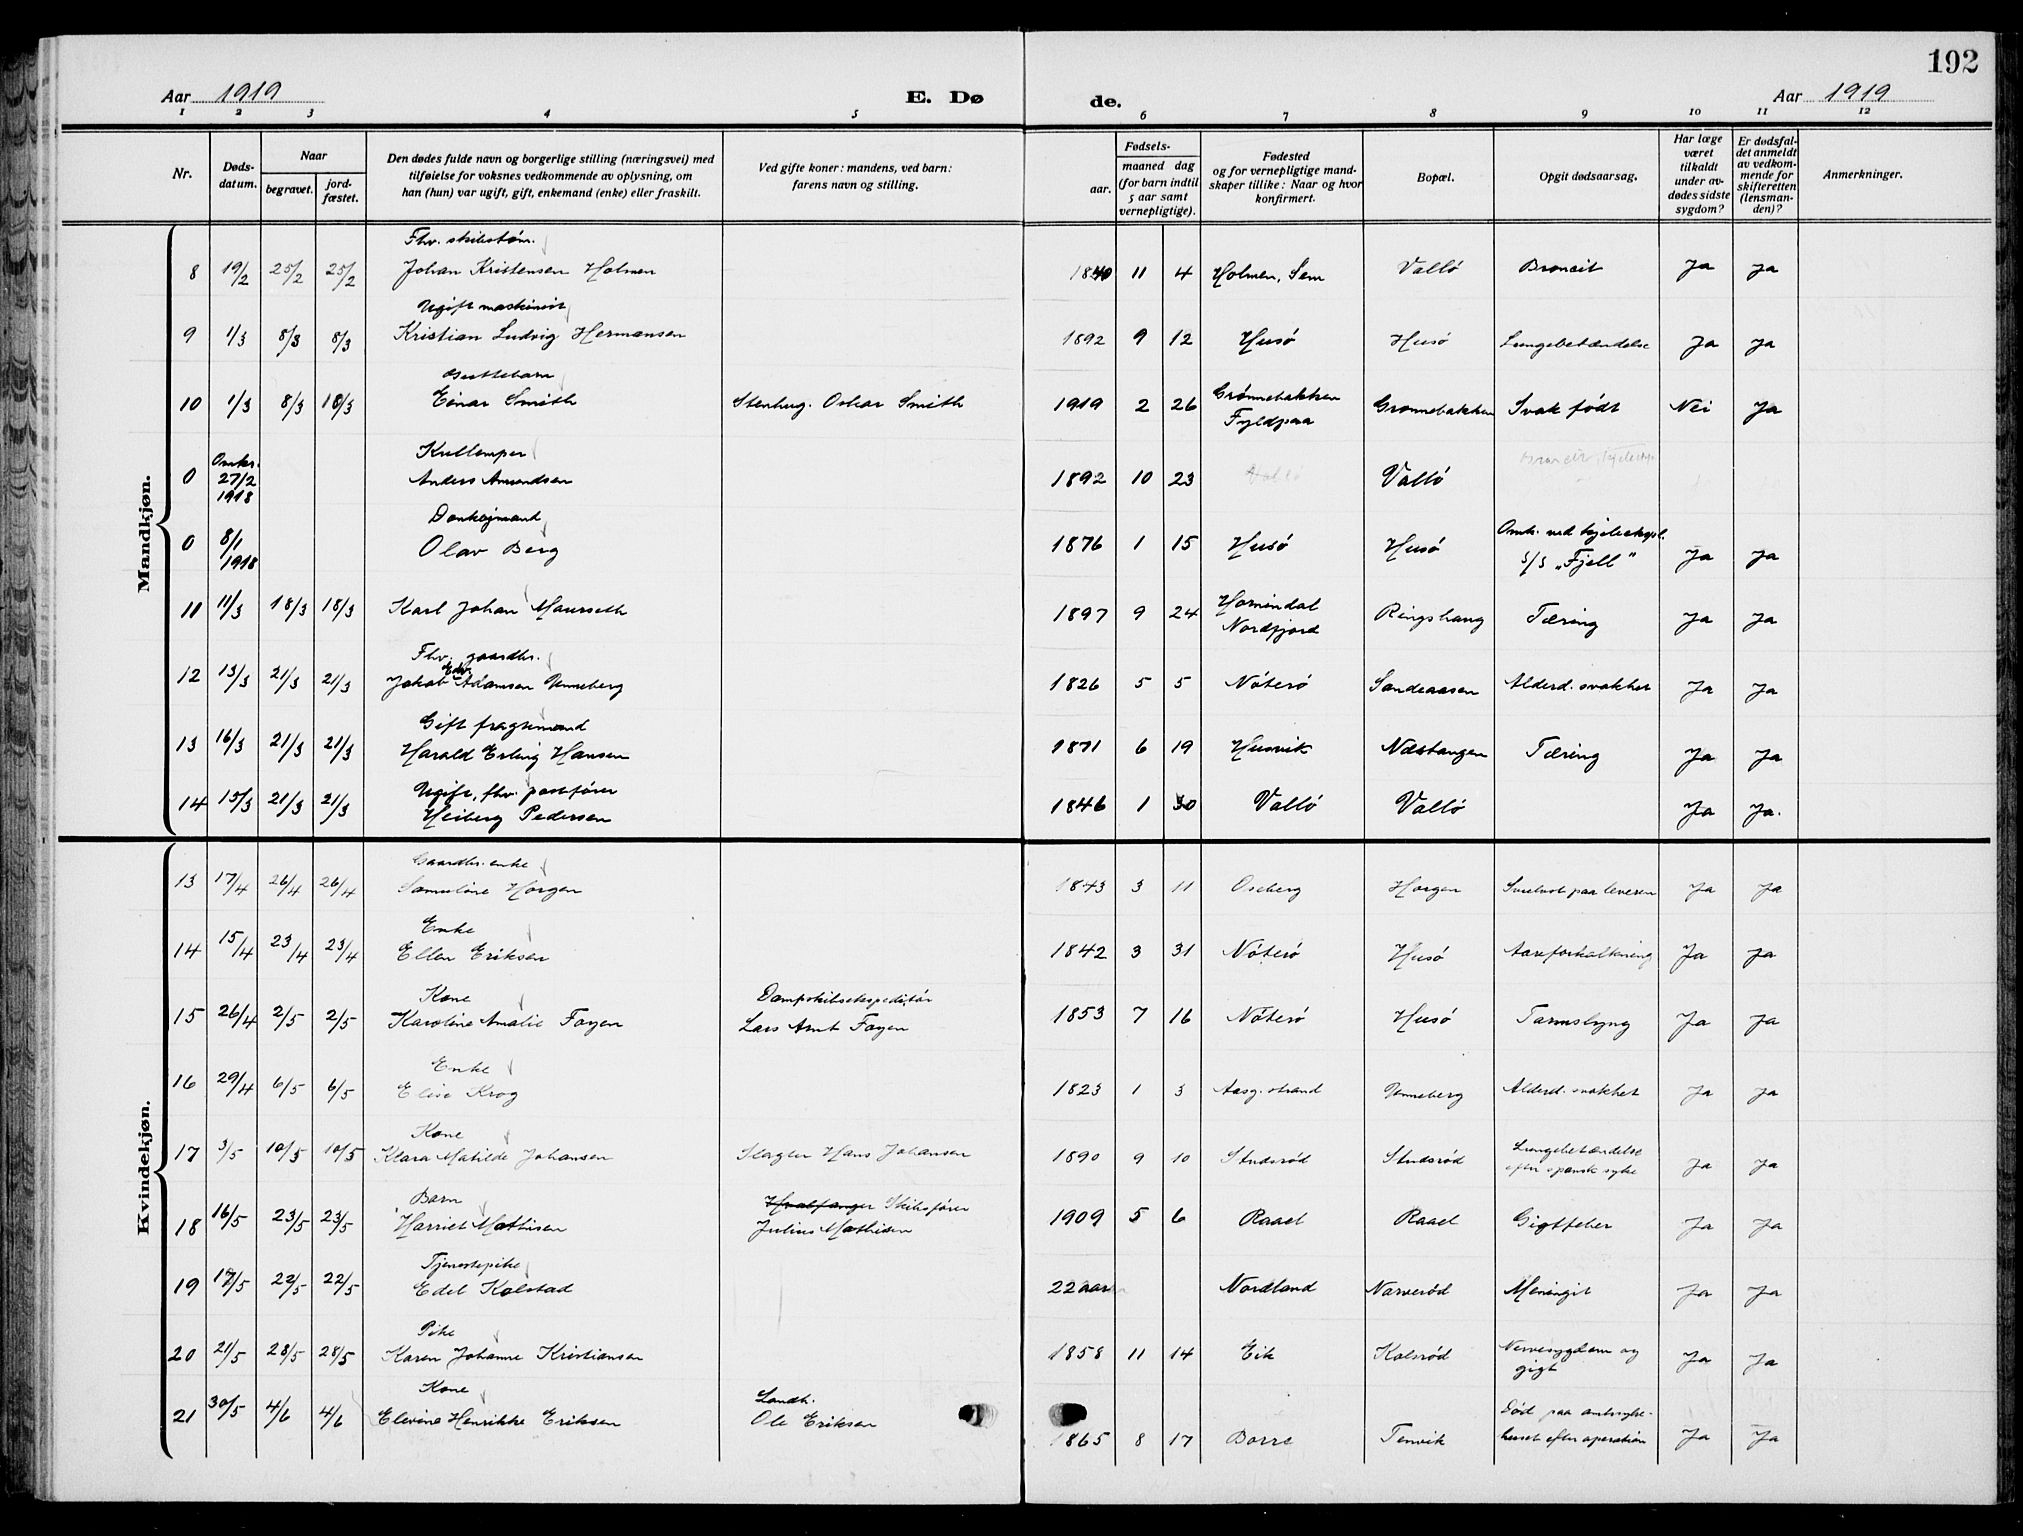 192
Aar 1919 E. Dø de. Aar 1919
1 2 3 4 5 6 7 8 9 10 11 12
Nr. Dødsdatum. Naar begravet. jordfæstet. Den dødes fulde navn og borgerlige stilling (næringsvei) med tilføielse for voksnes vedkommende av oplysning, om han (hun) var ugift, gift, enkemand (enke) eller fraskilt. Ved gifte koner: mandens, ved barn: farens navn og stilling. Fødsels- aar. maaned dag (for barn indtil 5 aar samt vernepligtige). Fødested og for vernepligtige mandskaper tillike: Naar og hvor konfirmert. Bopæl. Opgit dødsaarsag. Har læge været tilkaldt under avdødes sidste sygdom? Er dødsfaldet anmeldt av vedkommende for skifteretten (lensmanden)? Anmerkninger.
Mandkjøn.
Fhv. skibstøm.
8 19/2 25/2 25/2 Johan Kristensen Holmen 1840 11 4 Holmen, Sem Vallö Broncit Ja Ja
Ugift maskinist
9 1/3 8/3 8/3 Kristian Ludvig Hermansen 1892 9 12 Husö Husö Lungebetændelse Ja Ja
10 1/3 8/3 18/3 Einar Smith Stenhug. Oskar Smith 1919 2 26 Grønnebakken Fyldpaa Grønnebakken Svak født Nei Ja
Kullemper
0 Omkr. 27/2 1918 Anders Amundsen 1892 10 23 Vallö Vallö
Donkeymand
0 8/1 1918 Olav Berg 1876 1 15 Husö Husö Omk. ved kjeleekspl. S/S „Fjell" Ja Ja
11 11/3 18/3 18/3 Karl Johan Maurseth 1897 9 24 Hornindal Nordfjord Ringshaug Tæring Ja Ja
Fhv. gaardbr.
12 13/3 21/3 21/3 Jakob Edv. Adamsen Unneberg 1826 5 5 Nöterö Sandeaasen Alderd. svakhet Ja Ja
Gift fragtemand
13 16/3 21/3 21/3 Harald Erling Hansen 1871 6 19 Husvik Næstangen Tæring Ja Ja
Ugift, fhv. postfører
14 15/3 21/3 21/3 Heiberg Pedersen 1846 1 30 Vallö Vallö Ja Ja.
Kvindekjøn.
Gaardbr. enke
13 17/4 26/4 26/4 Samuline Horgen 1843 3 11 Oseberg Horgen Svulst paa leveren Ja Ja
Enke
14 15/4 23/4 23/4 Ellen Eriksen 1842 3 31 Nöterö Husö Aareforkalkning Ja Ja
Kone Dampskibsekspeditør
15 26/4 2/5 2/5 Karoline Amalie Fagen Lars Amt Fagen 1853 7 16 Nöterö Husö Tarmslyng Ja Ja
Enke
16 29/4 6/5 6/5 Elise Krog 1823 1 3 Aasg. strand Unneberg Alderd. svakhet Ja Ja
Kone
17 3/5 10/5 10/5 Klara Matilde Johansen Slagter Hans Johansen 1890 9 10 Studsrød Studsrød Lungebetændelse efter spansk syke Ja Ja
Barn Hvalfanger Skibsfører
18 16/5 23/5 23/5 Harriet Mathisen Julius Mathisen 1909 5 6 Raael Raael Gigtfeber Ja Ja
Tjenestepike
19 17/5 22/5 22/5 Edel Kolstad 22 aar Nordland Narverød Meningit Ja Ja
Pike
20 21/5 28/5 28/5 Karen Johanne Kristiansen 1858 11 14 Eik Kalsrød Nervesygdom og gigt Ja Ja
Kone Landh.
21 30/5 4/6 4/6 Elevine Henrikke Eriksen Ole Eriksen 1865 8 17 Borre Tenvik Død paa amtssykehuset efter operation Ja Ja